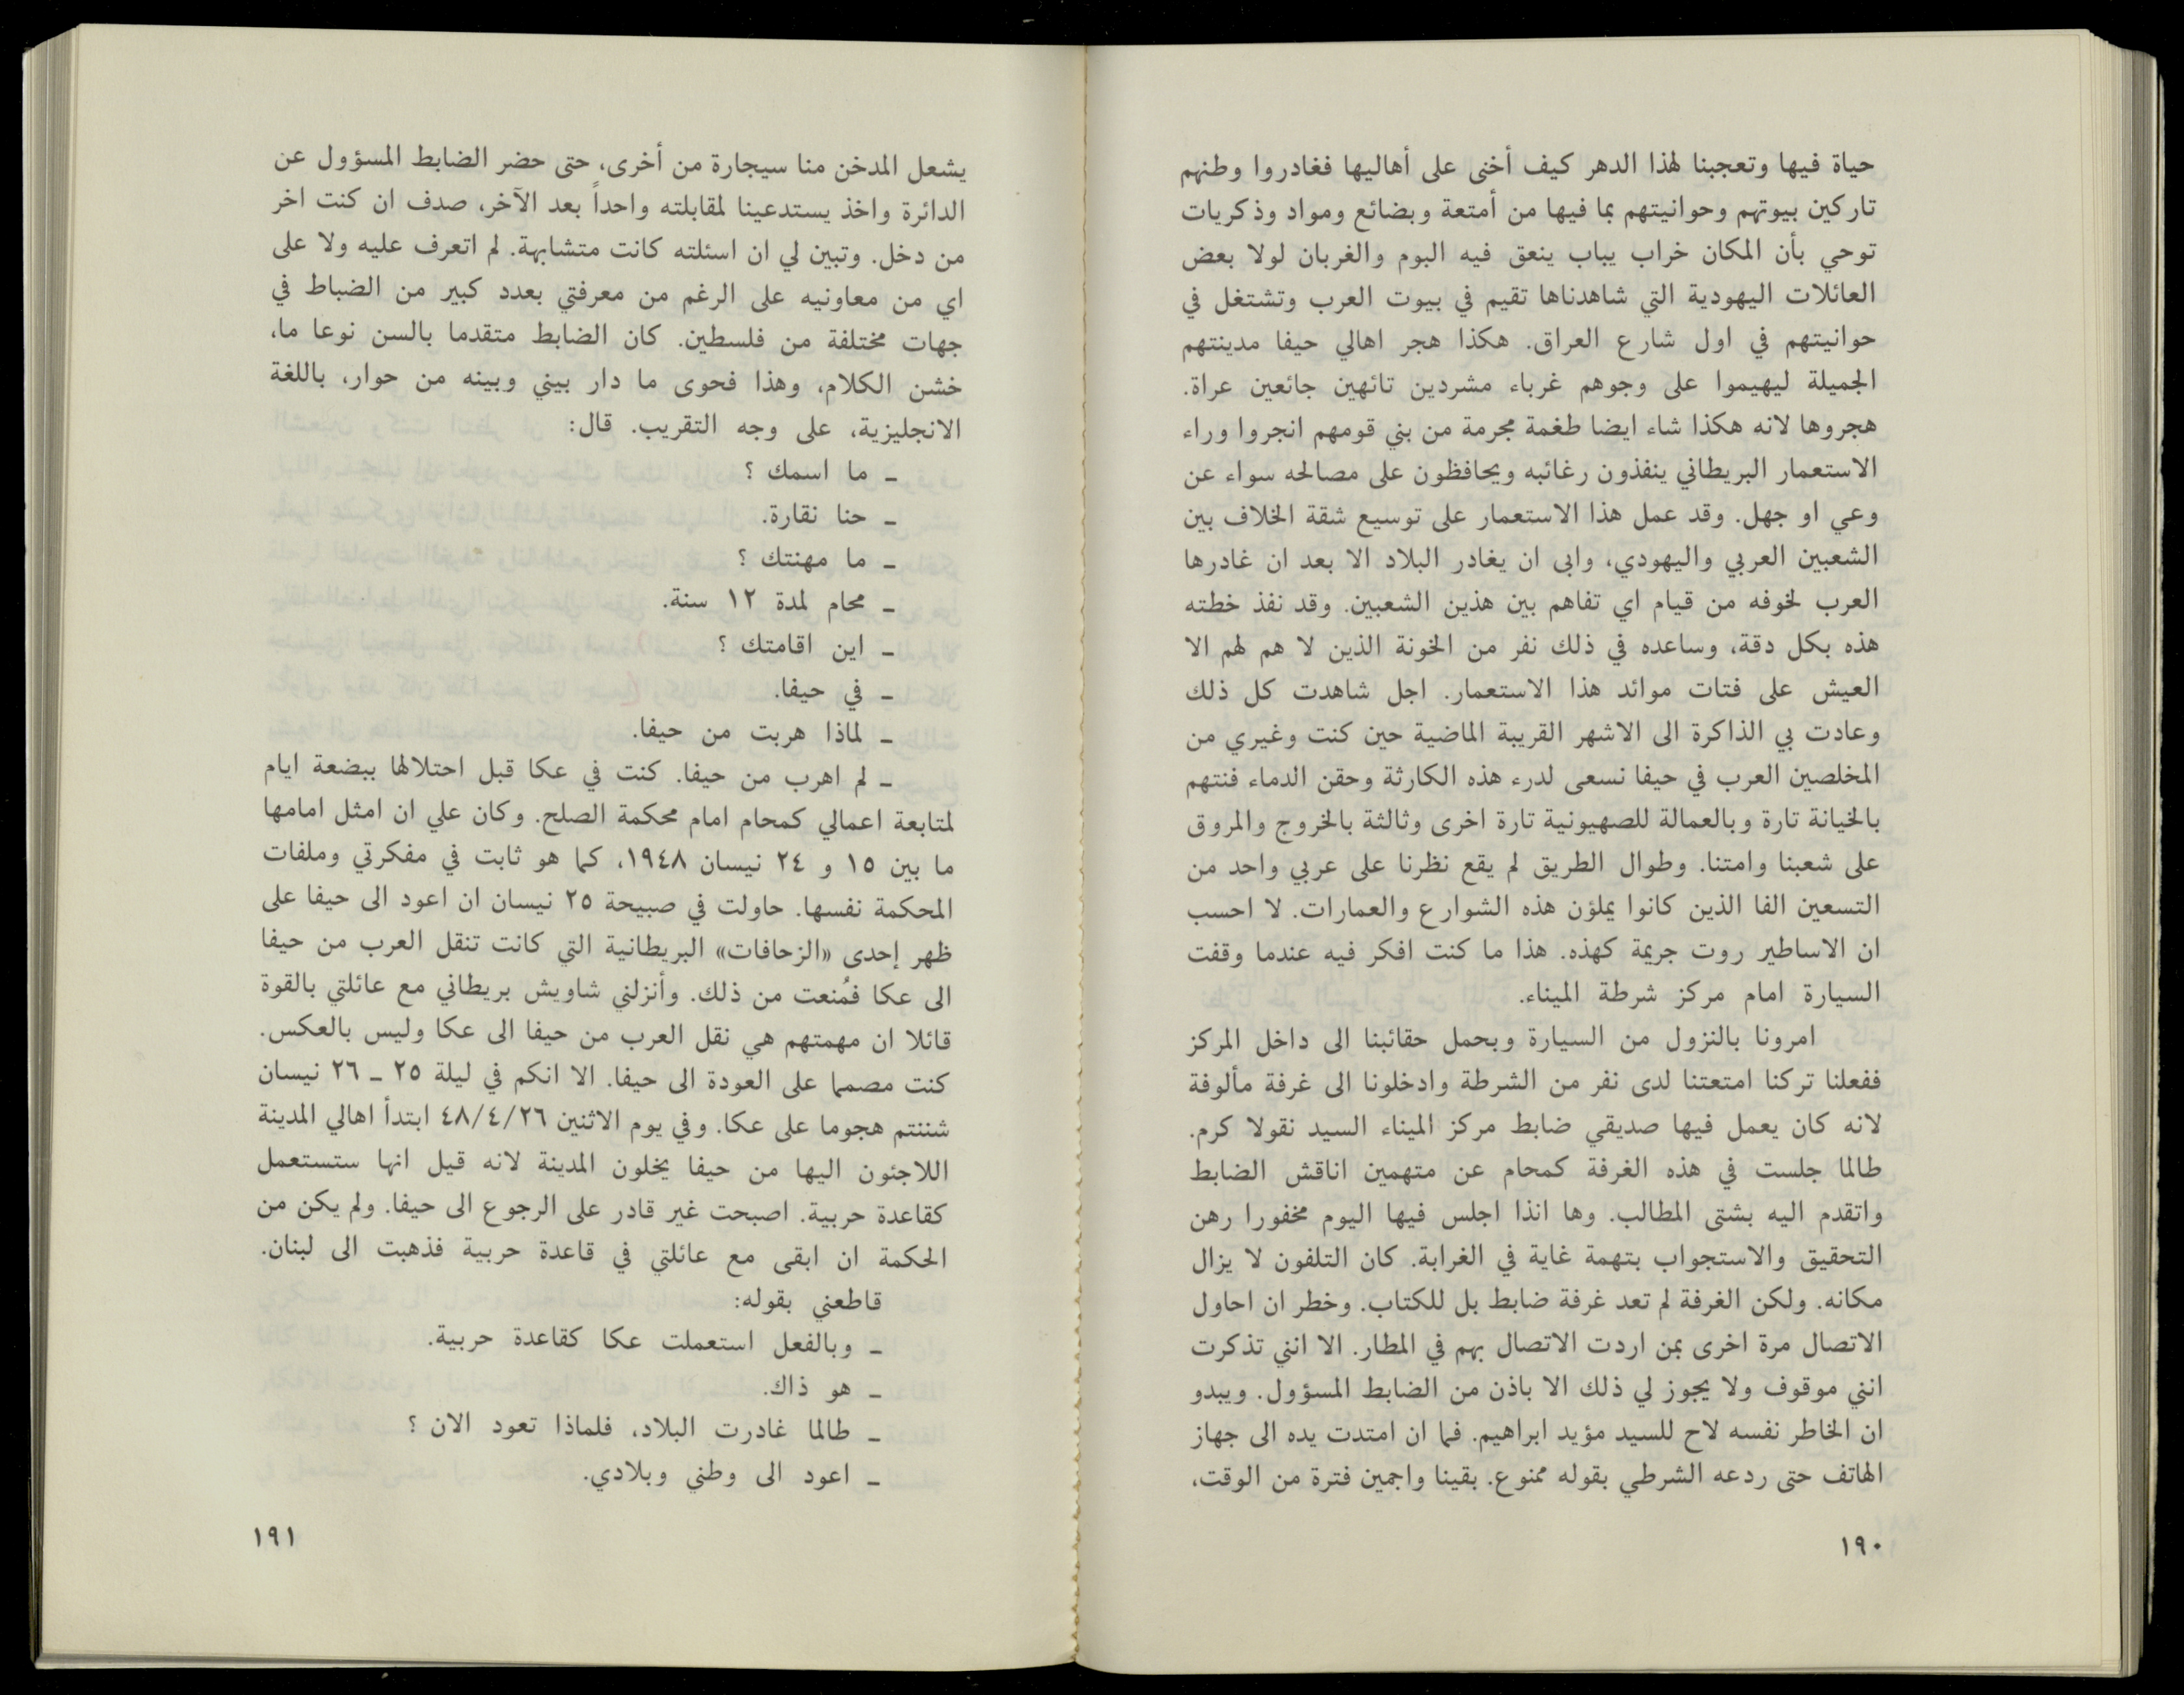 حياة فيها وتعجبنا لهذا الدهر كيف أخنى على أهاليها فغادروا وطنهم
تاركين بيوتهم وحوانيتهم بما فيها من أمتعة وبضائع ومواد وذكريات
توحي بأن المكان خراب يباب ينعق فيه البوم والغربان لولا بعض
العائلات اليهودية التي شاهدناها تقيم في بيوت العرب وتشتغل في
حوانيتهم في اول شارع العراق. هكذا هجر اهالي حيفا مدينتهم
الجميلة ليهيموا على وجوهم غرباء مشردين تائهين جائعين عراة.
هجروها لانه هكذا شاء ايضا طغمة مجرمة من بني قومهم انجروا وراء
الاستعمار البريطاني ينفذون رغائبه ويحافظون على مصالحه سواء عن
وعي او جهل. وقد عمل هذا الاستعمار على توسيع شقة الخلاف بين
الشعبين العربي واليهودي، وابى ان يغادر البلاد الا بعد ان غادرها
العرب لخوفه من قيام اي تفاهم بين هذين الشعبين. وقد نفذ خطته
هذه بكل دقة، وساعده في ذلك نفر من الخونة الذين لا هم لهم الا
العيش على فتات موائد هذا الاستعمار. اجل شاهدت كل ذلك
وعادت بي الذاكرة الى الاشهر القريبة الماضية حين كنت وغيري من
المخلصين العرب في حيفا نسعى لدرء هذه الكارثة وحقن الدماء فنتهم
بالخيانة تارة وبالعمالة للصهيونية تارة اخرى وثالثة بالخروج والمروق
على شعبنا وامتنا. وطوال الطريق لم يقع نظرنا على عربي واحد من
التسعين الفا الذين كانوا يملؤن هذه الشوارع والعمارات. لا احسب
ان الاساطير روت جريمة كهذه. هذا ما كنت افكر فيه عندما وقفت
السيارة امام مركز شرطة الميناء.
امرونا بالنزول من السيارة وبحمل حقائبنا الى داخل المركز
ففعلنا تركنا امتعتنا لدى نفر من الشرطة وادخلونا الى غرفة مألوفة
لانه كان يعمل فيها صديقي ضابط مركز الميناء السيد نقولا كرم.
طالما جلست في هذه الغرفة كمحام عن متهمين اناقش الضابط
واتقدم اليه بشتى المطالب. وها انذا اجلس فيها اليوم مخفورا رهن
التحقيق والاستجواب بتهمة غاية في الغرابة. كان التلفون لا يزال
مكانه. ولكن الغرفة لم تعد غرفة ضابط بل للكتاب. وخطر ان احاول
الاتصال مرة اخرى بمن اردت الاتصال بهم في المطار. الا انني تذكرت
انني موقوف ولا يجوز لي ذلك الا باذن من الضابط المسؤول. ويبدو
ان الخاطر نفسه لاح للسيد مؤيد ابراهيم. فما ان امتدت يده الى جهاز
الهاتف حتى ردعه الشرطي بقوله ممنوع. بقينا واجمين فترة من الوقت،
١٩٠
يشعل المدخن منا سيجارة من أخرى، حتى حضر الضابط المسؤول عن
الدائرة واخذ يستدعينا لمقابلته واحداً بعد الآخر، صدف ان كنت اخر
من دخل. وتبين لي ان اسئلته كانت متشابهة. لم اتعرف عليه ولا على
اي من معاونيه على الرغم من معرفتي بعدد كبير من الضباط في
جهات مختلفة من فلسطين. كان الضابط متقدما بالسن نوعا ما،
خشن الكلام، وهذا فحوى ما دار بيني وبينه من حوار، باللغة
الانجليزية، على وجه التقريب. قال:
ـ ما اسمك ؟
ـ حنا نقارة.
ـ ما مهنتك ؟
ـ محام لمدة ١٢ سنة.
ـ اين اقامتك ؟
ـ في حيفا.
ـ لماذا هربت من حيفا.
ـ لم اهرب من حيفا. كنت في عكا قبل احتلالها ببضعة ايام
لمتابعة اعمالي كمحام امام محكمة الصلح. وكان علي ان امثل امامها
ما بين ١٥ و ٢٤ نيسان ١٩٤٨، كما هو ثابت في مفكرتي وملفات
المحكمة نفسها. حاولت في صبيحة ٢٥ نيسان ان اعود الى حيفا على
ظهر إحدى «الزحافات» البريطانية التي كانت تنقل العرب من حيفا
الى عكا فمُنعت من ذلك. وأنزلني شاويش بريطاني مع عائلتي بالقوة
قائلا ان مهمتهم هي نقل العرب من حيفا الى عكا وليس بالعكس.
كنت مصمما على العودة الى حيفا. الا انكم في ليلة ٢٥ ـ ٢٦ نيسان
شننتم هجوما على عكا. وفي يوم الاثنين ٤٨/٤/٢٦ ابتدأ اهالي المدينة
اللاجئون اليها من حيفا يخلون المدينة لانه قيل انها ستستعمل
كقاعدة حربية. اصبحت غير قادر على الرجوع الى حيفا. ولم يكن من
الحكمة ان ابقى مع عائلتي في قاعدة حربية فذهبت الى لبنان.
قاطعني بقوله:
ـ وبالفعل استعملت عكا كقاعدة حربية.
ـ هو ذاك.
ـ طالما غادرت البلاد، فلماذا تعود الان ؟
ـ اعود الى وطني وبلادي.
١٩١